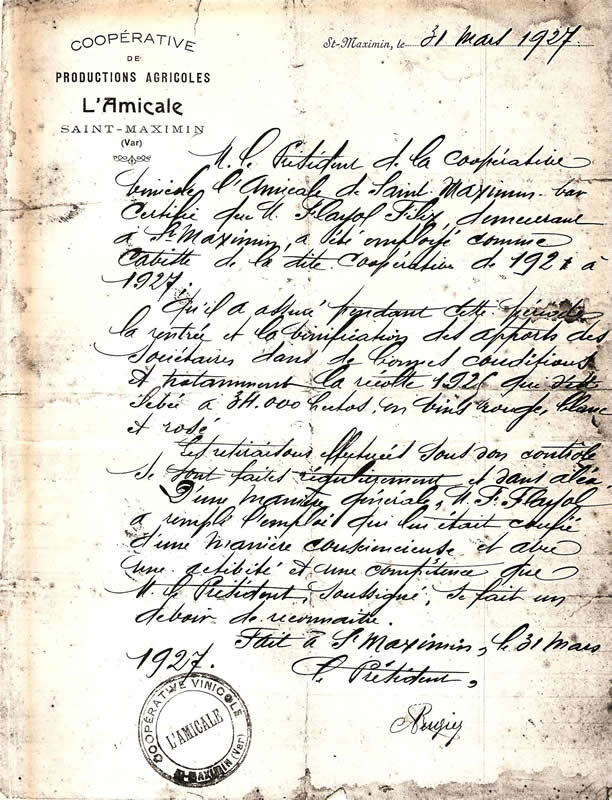 COOPÉRATIVE
DE
PRODUCTIONS AGRICOLES
L'Amicale
SAINT-MAXIMIN
(Var)
St-Maximin, le 31 Mars 1927.
M. le Président de la coopérative
vinicole l'Amicale de Saint Maximin var
Certifie que M. Flayol Félix, demeurant
à St Maximin, a été employé comme
Caviste de la dite Coopérative de 1921 à
1927.
Qu'il a assuré pendant cette période
la rentrée et la vinification des apports des
Sociétaires dans de bonnes conditions
et notamment la récolte 1926 qui s'est
élevée à 34.000 hectos, en vins rouge, blanc
et rosé
Les retiraisons effectuées sous son contrôle
se sont faites régulièrement et sans aléa.
D'une manière générale, M. F. Flayol
a rempli l'emploi qui lui était confié
d'une manière consciencieuse et avec
une activité et une compétence que
M. le Président, soussigné, se fait un
devoir de reconnaître.
Fait à St Maximin, le 31 Mars
1927.
Le Président,
COOPÉRATIVE VINICOLE
L'AMICALE
ST-MAXIMIN (Var)